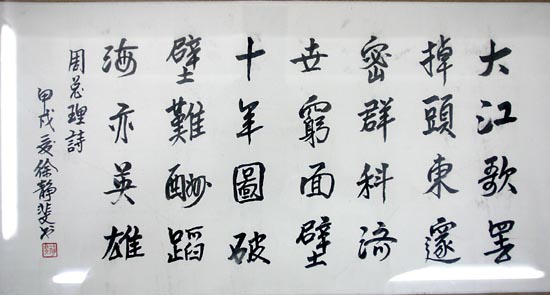 大江歌罢
掉頭東邃
密群科济
世窮面壁
十年圖破
壁難酬蹈
海亦英雄
周总理詩
甲戌夏徐静斐书